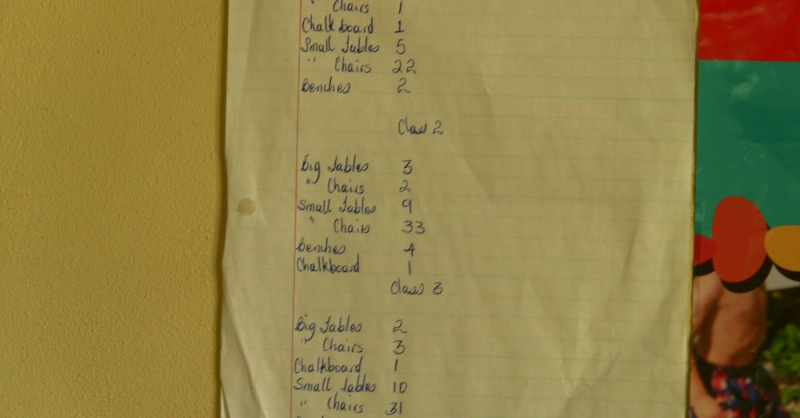 " Chairs 1
Chalkboard 1
Small Tables 5
" Chairs 22
Benches 2
Class 2
Big Tables 3
" Chairs 2
Small Tables 9
" Chairs 33
Benches 4
Chalkboard 1
Class 3
Big Tables 2
" Chairs 3
Chalkboard 1
Small Tables 10
" Chairs 31